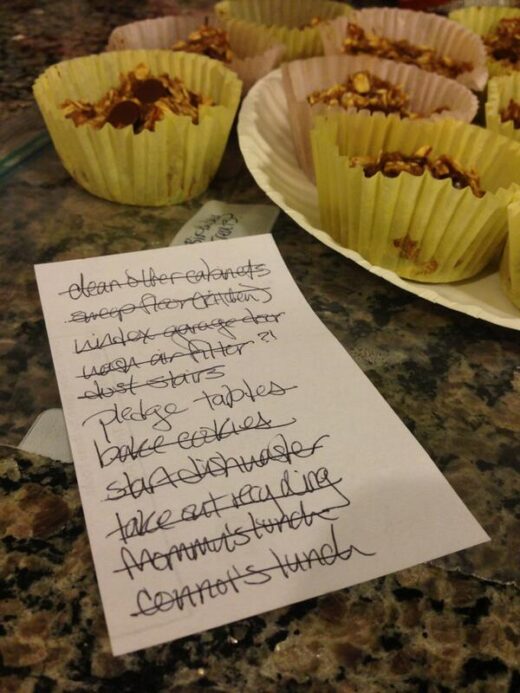 clean other cabinets
sweep floor (kitchen)
windex garage door
wash air filter ?!
dust stairs
pledge tables
bake cookies
start dishwasher
take out recycling
Mommy's lunch
connor's lunch